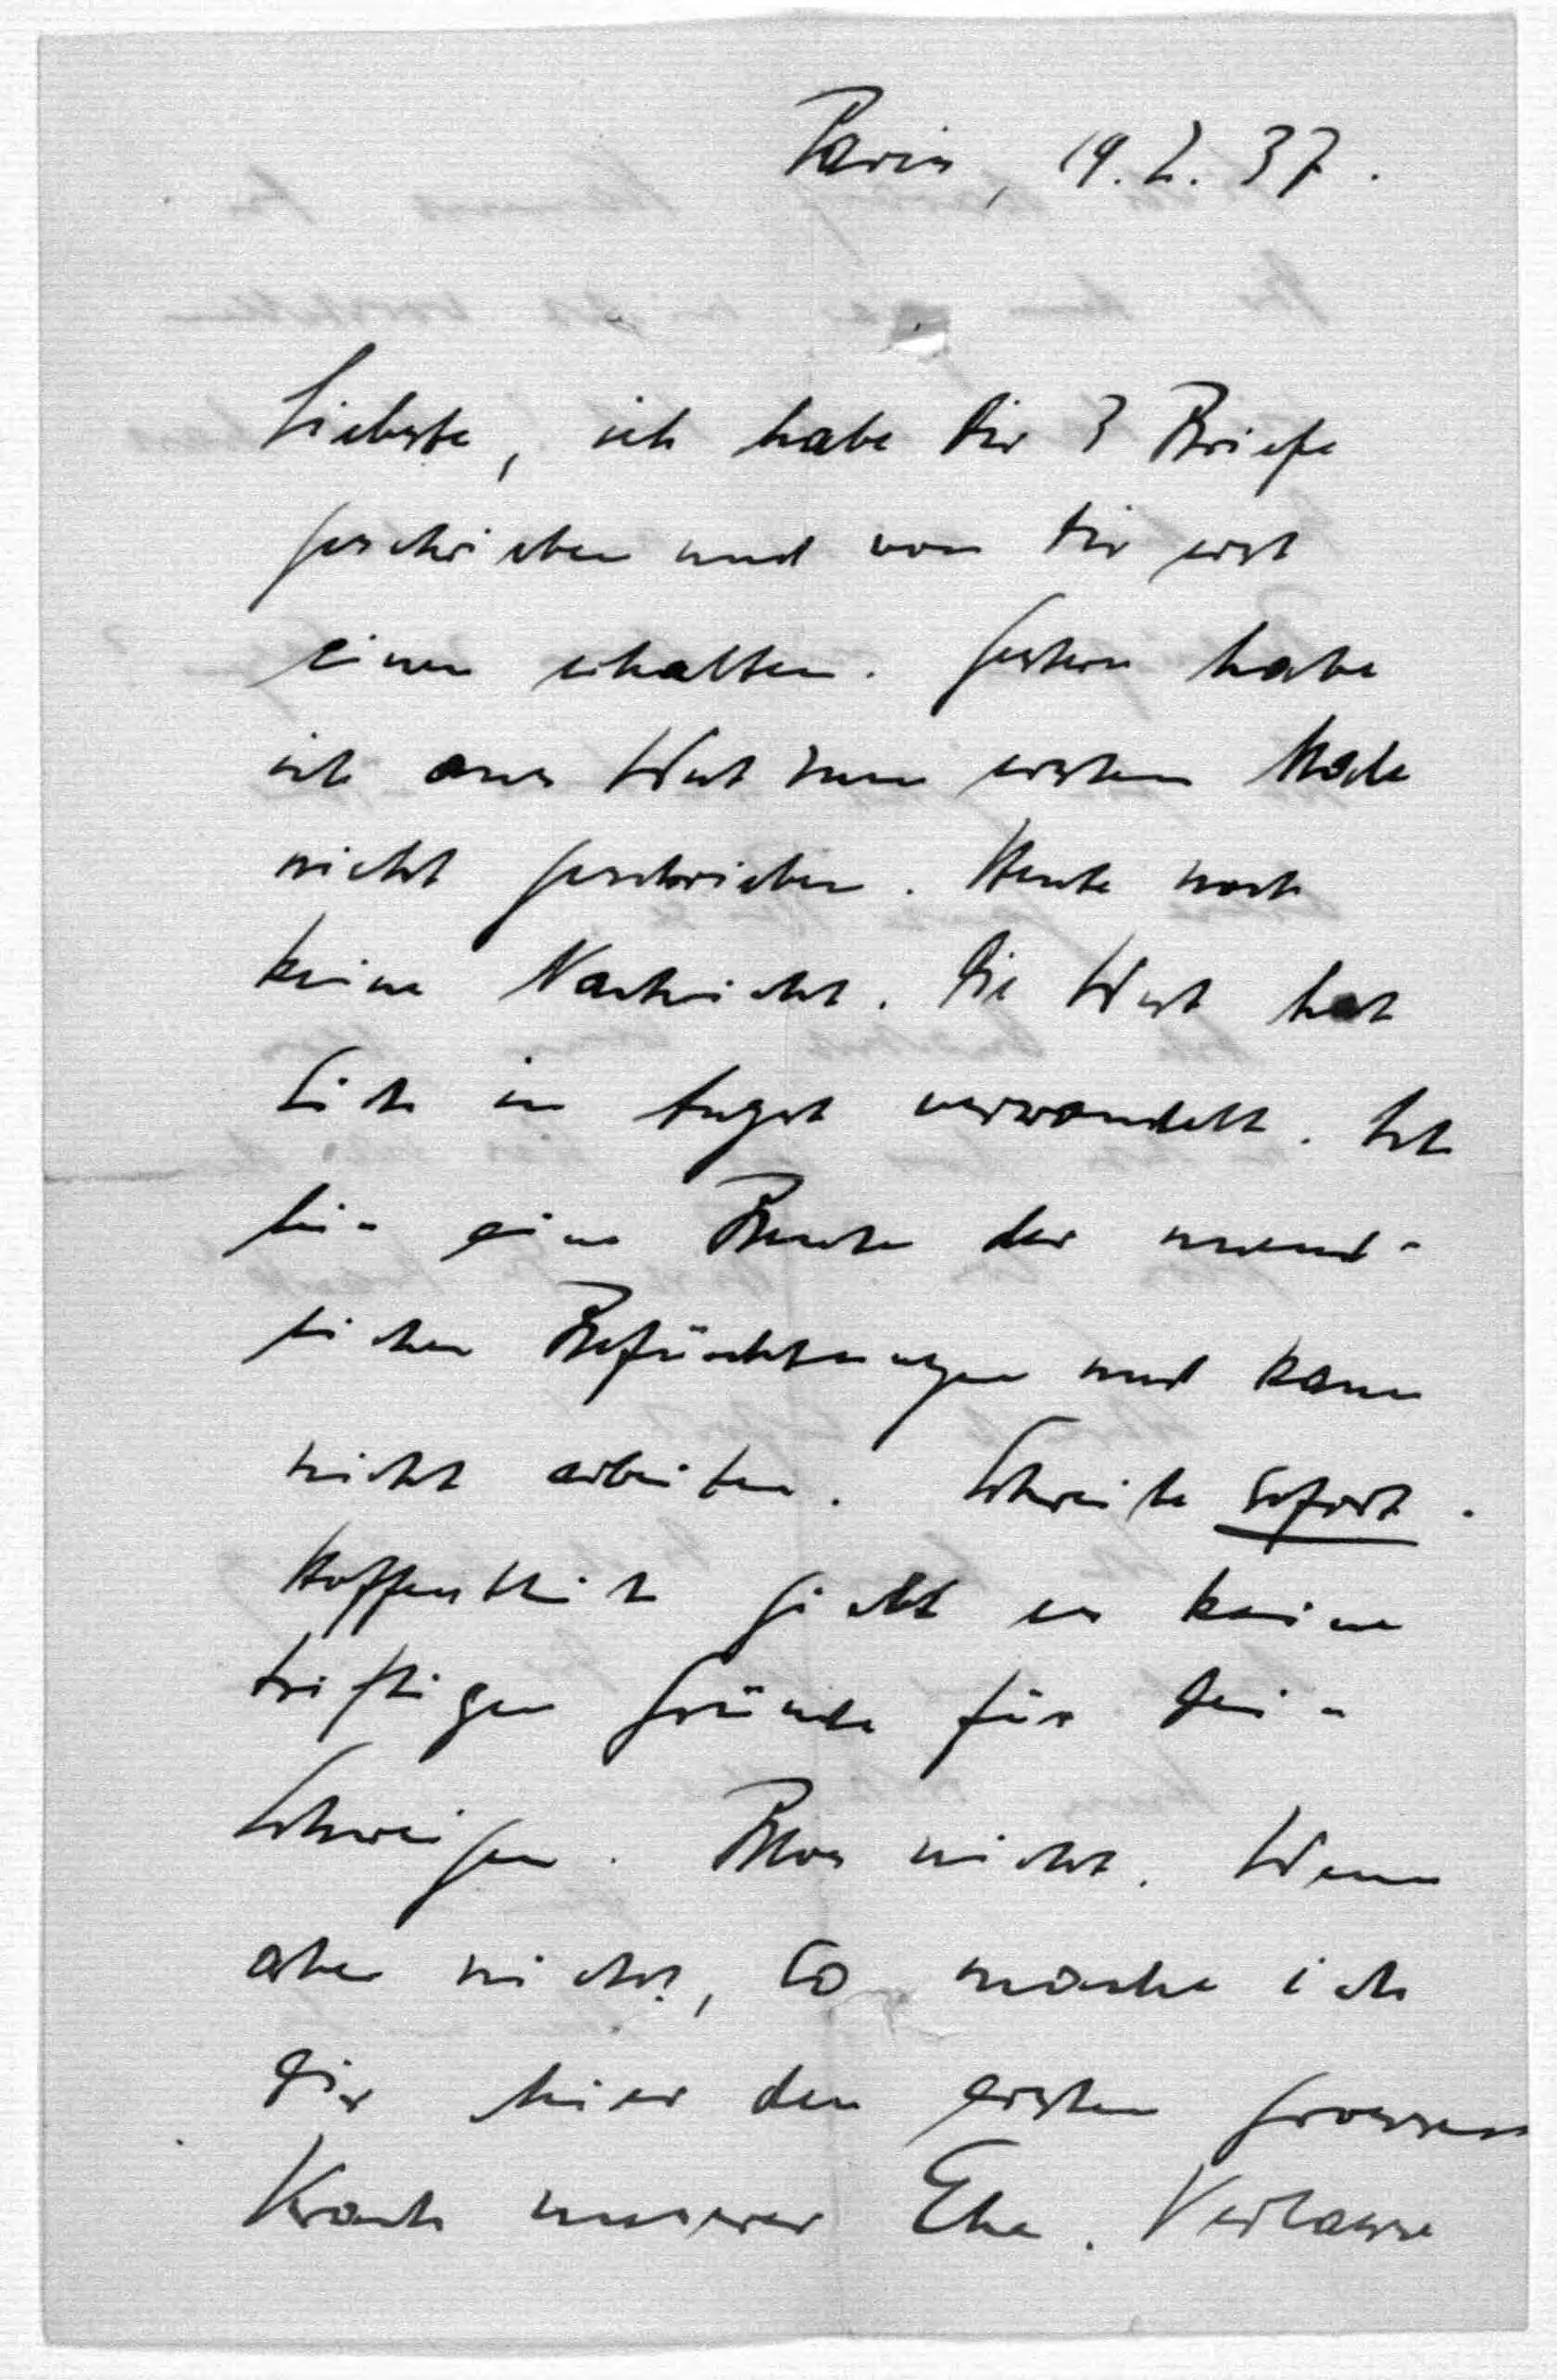 Paris, 19.2.37.
Liebste, ich habe Dir 3 Briefe
geschrieben und von Dir erst
einen erhalten. Gestern habe
ich aus Wut zum ersten Male
nicht geschrieben. Heute noch
keine Nachricht. Die Wut hat
sich in Angst verwandelt. Ich
bin eine Beute der unend-
lichen Befürchtungen und kann
nicht arbeiten. Schreibe sofort.
Hoffentlich giebt es keine
triftigen Gründe für Dein
Schweigen. Blos nicht. Wenn
aber nicht, so mache ich
Dir hier den ersten grossen
Krach unserer Ehe. Verlasse